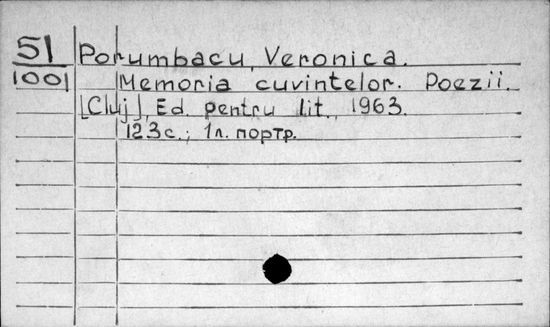 51 Porumbacu, Veronica.
1001 Memoria cuvintelor. Poezii.
[Cluj], Ed. pentru lit., 1963.
123 с.; 1 л. портр.